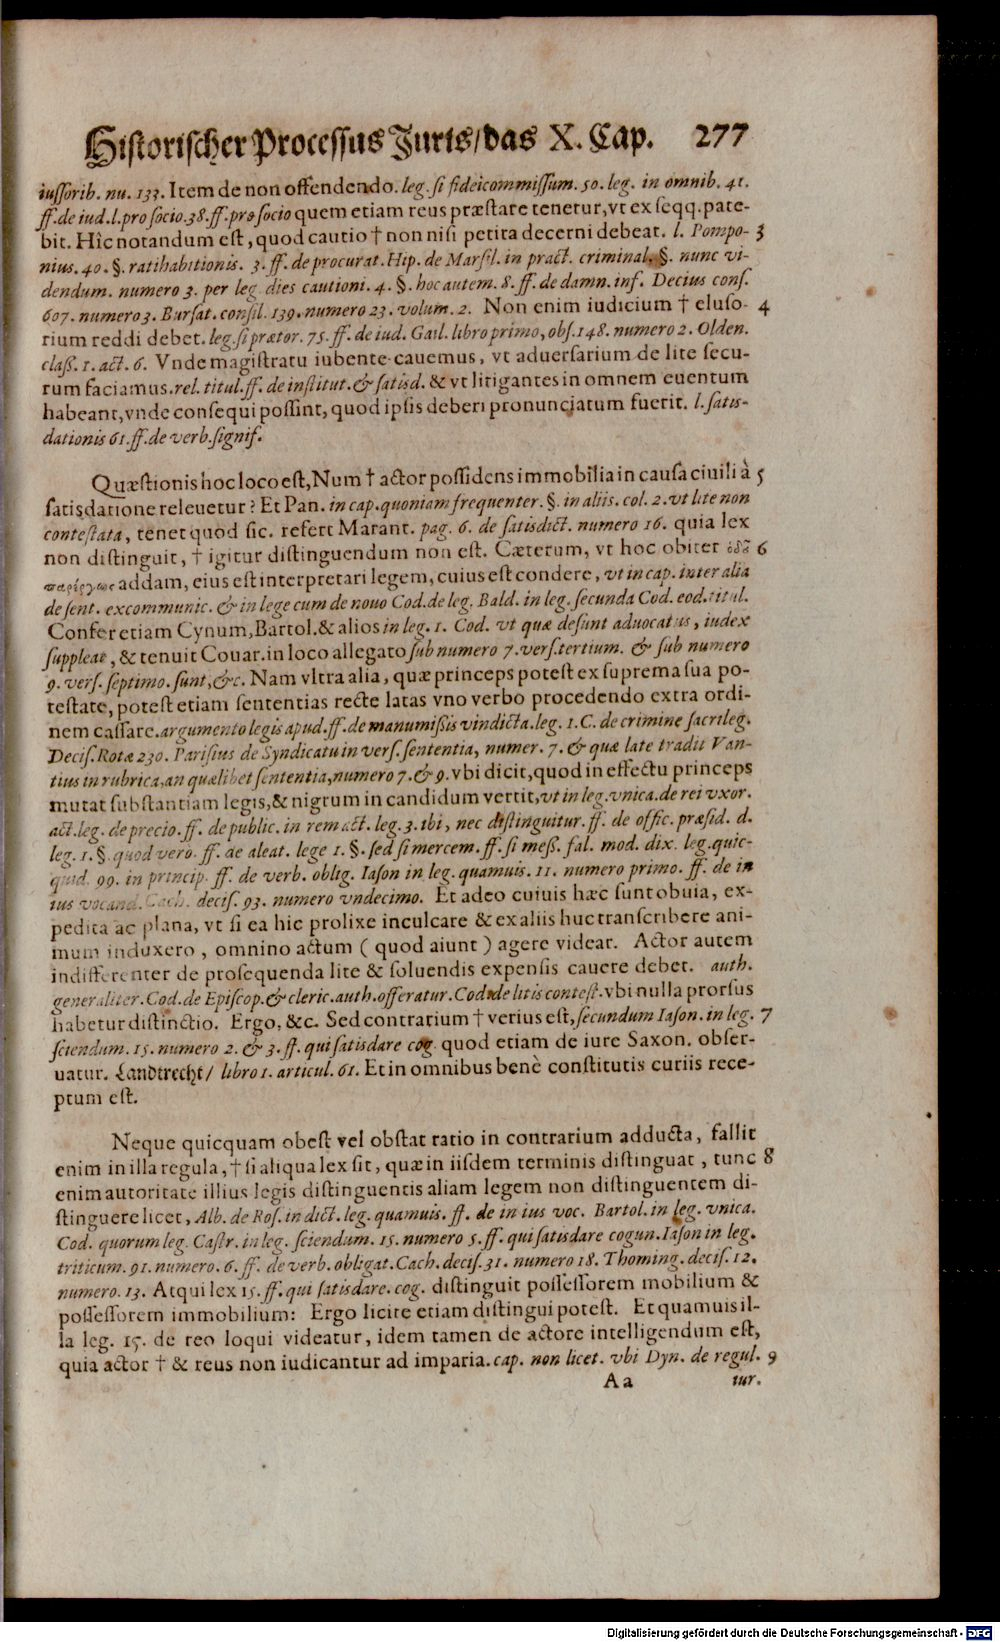 Historischer Processus Juris/das X. Cap. 277
iussorib. nu. 133. Item de non offendendo. leg. si fideicommissum. 50. leg. in omnib. 41.
ff. de iud. l. pro socio. 38. ff. pro socio quem etiam reus præstare tenetur, vt ex seqq. pate-
bit. Hîc notandum est, quod cautio † non nisi petita decerni debeat. l. Pompo- 3
nius. 40. §. ratihabitionis. 3. ff. de procurat. Hip. de Marsil. in pract. criminal. §. nunc vi-
dendum. numero 3. per leg. dies cautioni. 4. §. hoc autem. 8. ff. de damn. inf. Decius cons.
607. numero 3. Bursat. consil. 139. numero 23. volum. 2. Non enim iudicium † eluso- 4
rium reddi debet. leg. si prætor. 75. ff. de iud. Gail. libro primo, obs. 148. numero 2. Olden.
class. 1. act. 6. Vnde magistratu iubente cauemus, vt aduersarium de lite secu-
rum faciamus. rel. titul. ff. de institut. & satisd. & vt litigantes in omnem euentum
habeant, vnde consequi possint, quod ipsis deberi pronunciatum fuerit. l. satis-
dationis 61. ff. de verb. signif.
Quæstionis hoc loco est, Num † actor possidens immobilia in causa ciuili à 5
satisdatione releuetur? Et Pan. in cap. quoniam frequenter. §. in aliis. col. 2. vt lite non
contestata, tenet quod sic. refert Marant. pag. 6. de satisdict. numero 16. quia lex
non distinguit, † igitur distinguendum non est. Cæterum, vt hoc obiter 6
addam, eius est interpretari legem, cuius est condere, vt in cap. inter alia
de sent. excommunic. & in lege cum de nouo Cod. de leg. Bald. in leg. secunda Cod. eod. titul.
Confer etiam Cynum, Bartol. & alios in leg. 1. Cod. vt quæ desunt aduocatus, iudex
suppleat, & tenuit Couar. in loco allegato sub numero 7. vers. tertium. & sub numero
9. vers. septimo. sunt, &c. Nam vltra alia, quæ princeps potest ex suprema sua po-
testate, potest etiam sententias recte latas vno verbo procedendo extra ordi-
nem cassare. argumento legis apud. ff. de manumissis vindicta. leg. 1. C. de crimine sacrileg.
Decis. Rotæ 230. Parisius de Syndicatu in vers. sententia, numer. 7. & quæ late tradit Van-
tius in rubrica, an quælibet sententia, numero 7. & 9. vbi dicit, quod in effectu princeps
mutat substantiam legis, & nigrum in candidum vertit, vt in leg. vnica. de rei vxor.
act. leg. de precio. ff. de public. in rem act. leg. 3. ibi, nec distinguitur. ff. de offic. præsid. d.
leg. 1. §. quod vero. ff. de aleat. lege 1. §. sed si mercem. ff. si mess. fal. mod. dix. leg. quic-
quid. 99. in princip. ff. de verb. oblig. Iason in leg. quamuis. 11. numero primo. ff. de in
ius vocand. Cach. decis. 93. numero vndecimo. Et adeo cuiuis hæc sunt obuia, ex-
pedita ac plana, vt si ea hic prolixe inculcare & ex aliis huc transcribere ani-
mum induxero, omnino actum ( quod aiunt ) agere videar. Actor autem
indifferenter de prosequenda lite & soluendis expensis cauere debet. auth.
generaliter. Cod. de Episcop. & cleric. auth. offeratur. Cod. de litis contest. vbi nulla prorsus
habetur distinctio. Ergo, &c. Sed contrarium † verius est, secundum Iason. in leg. 7
sciendum. 15. numero 2. & 3. ff. qui satisdare cog. quod etiam de iure Saxon. obser-
uatur. Landtrecht/ libro 1. articul. 61. Et in omnibus benè constitutis curiis rece-
ptum est.
Neque quicquam obest vel obstat ratio in contrarium adducta, fallit
enim in illa regula, † si aliqua lex sit, quæ in iisdem terminis distinguat, tunc 8
enim autoritate illius legis distinguentis aliam legem non distinguentem di-
stinguere licet, Alb. de Ros. in dict. leg. quamuis. ff. de in ius voc. Bartol. in leg. vnica.
Cod. quorum leg. Castr. in leg. sciendum. 15. numero 5. ff. qui satisdare cogun. Iason in leg.
triticum. 91. numero. 6. ff. de verb. obligat. Cach. decis. 31. numero 18. Thoming. decis. 12.
numero. 13. Atqui lex 15. ff. qui satisdare. cog. distinguit possessorem mobilium &
possessorem immobilium: Ergo licite etiam distingui potest. Et quamuis il-
la leg. 15. de reo loqui videatur, idem tamen de actore intelligendum est,
quia actor † & reus non iudicantur ad imparia. cap. non licet. vbi Dyn. de regul. 9
Aa iur.
Digitalisierung gefördert durch die Deutsche Forschungsgemeinschaft - DFG